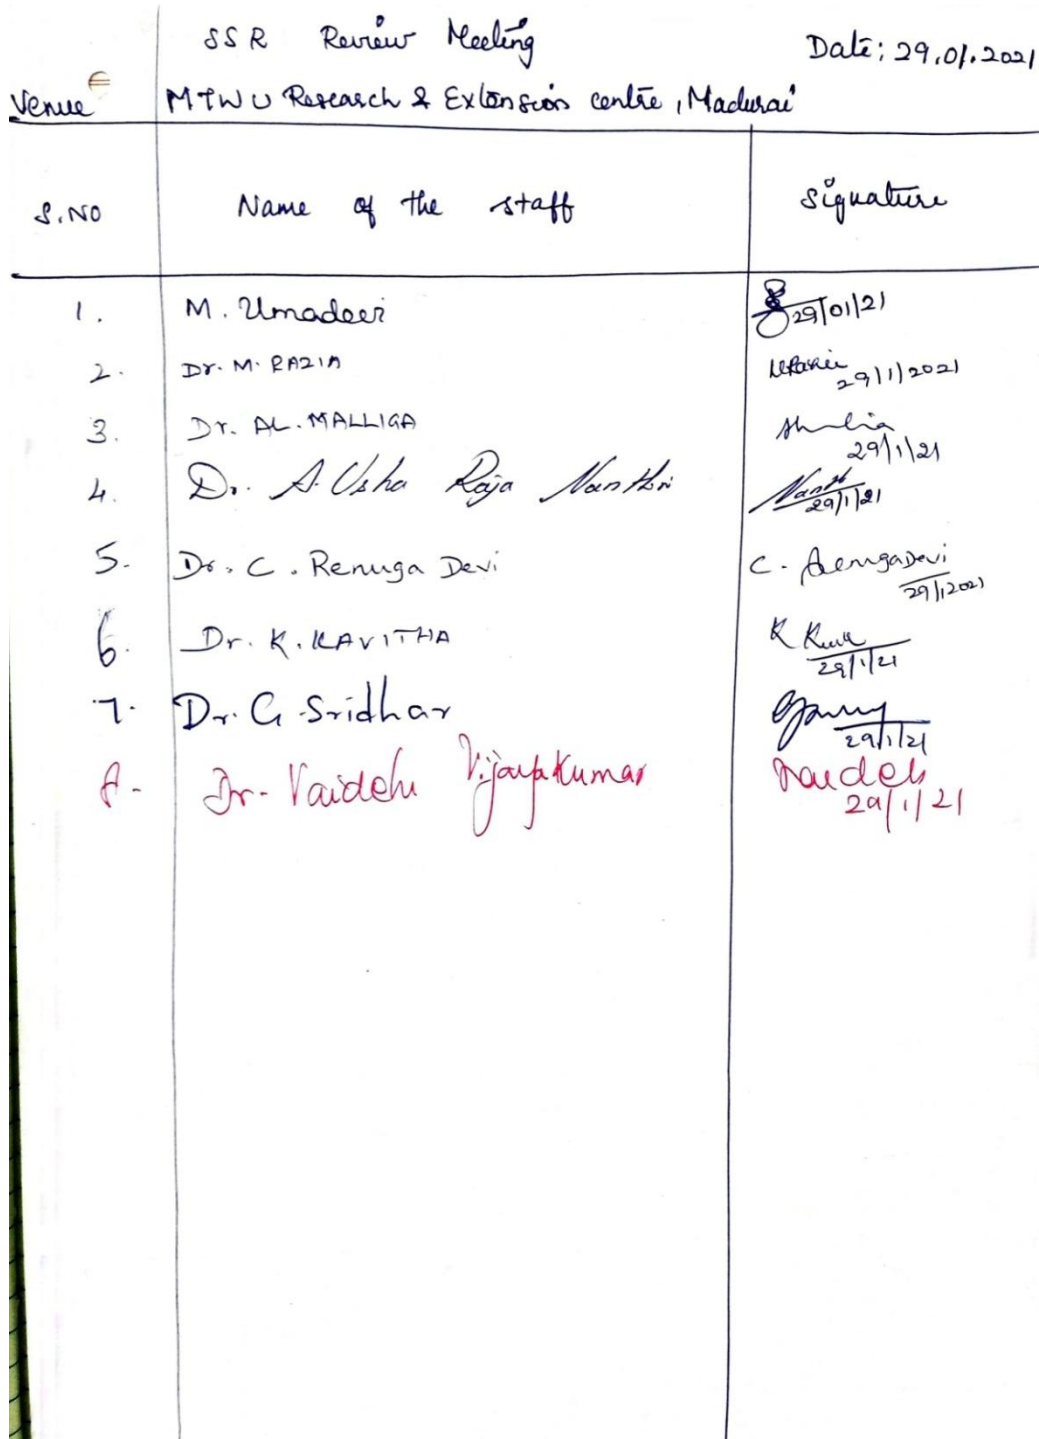 SSR Review Meeting Date: 29.01.2021
Venue MTWU Research & Extension centre, Madurai
S.NO Name of the staff Signature
1. M. Umadevi 29/01/21
2. Dr. M. RAZIA 29/1/2021
3. Dr. AL. MALLIGA 29/1/21
4. Dr. A. Usha Raja Nanthini 29/1/21
5. Dr. C. Renuga Devi C. RenugaDevi 29/1/2021
6. Dr. K. KAVITHA 29/1/21
7. Dr. G. Sridhar 29/1/21
8- Dr- Vaidehi Vijayakumar 29/1/21